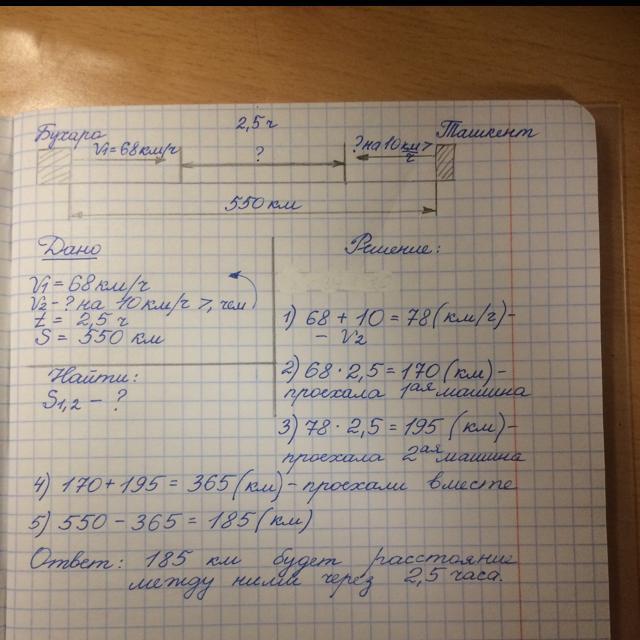 2,5 ч
Бухара
Ташкент
V1=68км/ч
?
? на 10 км/ч >
550 км
Дано
Решение:
V1 = 68 км/ч
V2 = ? на 10 км/ч >, чем
t = 2,5 ч
S = 550 км
Найти:
S1,2 – ?
1) 68 + 10 = 78 (км/ч) –
– V2
2) 68 · 2,5 = 170 (км) –
проехала 1ая машина
3) 78 · 2,5 = 195 (км) –
проехала 2ая машина
4) 170 + 195 = 365 (км) – проехали вместе
5) 550 – 365 = 185 (км)
Ответ: 185 км будет расстояние
между ними через 2,5 часа.